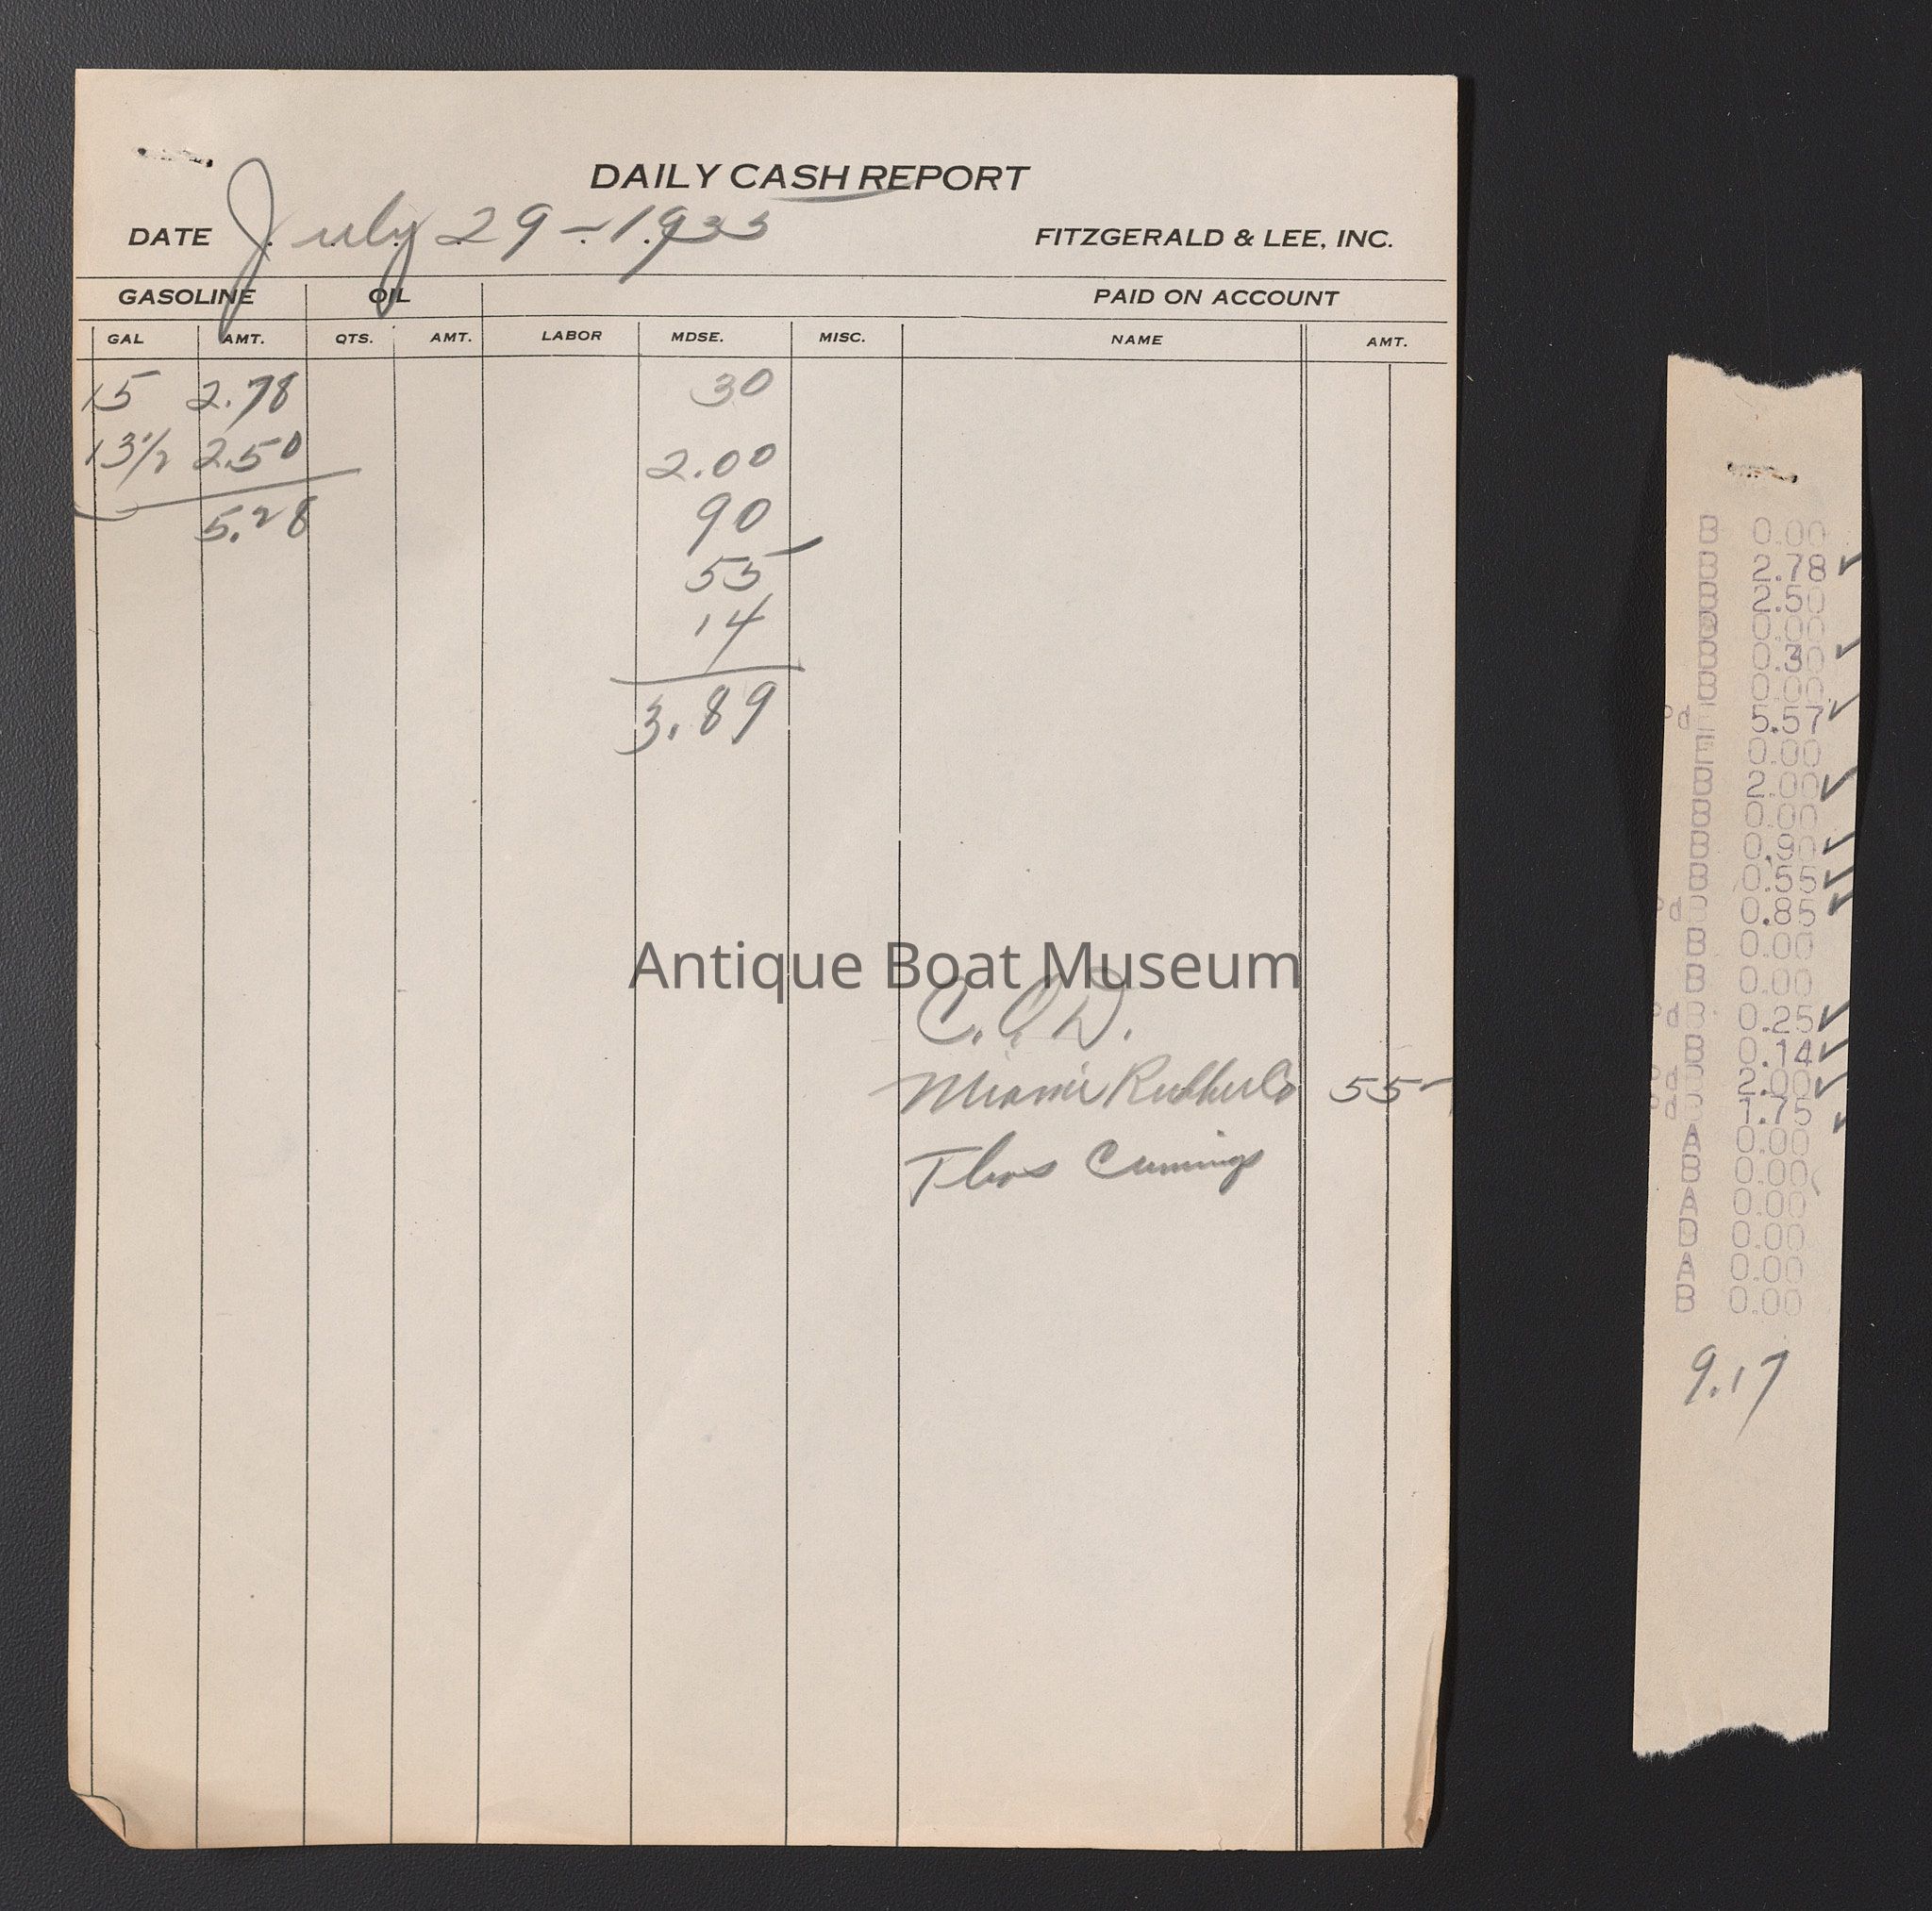 DAILY CASH REPORT
DATE July 29-1933 FITZGERALD & LEE, INC.
GASOLINE OIL PAID ON ACCOUNT
GAL AMT. QTS. AMT. LABOR MDSE. MISC. NAME AMT.
15 2.78 30
13 1/2 2.50 2.00
5.28 90
55
14
3.89
Antique Boat Museum
C.O.D.
Miami Rubber Co 55
Thos Cumings
B 0.00
B 2.78
B 2.50
B 0.00
B 0.30
B 0.00
Pd 5.57
E 0.00
B 2.00
B 0.00
B 0.90
B 0.55
Pd B 0.85
B 0.00
B 0.00
Pd B 0.25
B 0.14
Pd B 2.00
Pd 1.75
A 0.00
B 0.00
A 0.00
D 0.00
A 0.00
B 0.00
9.17